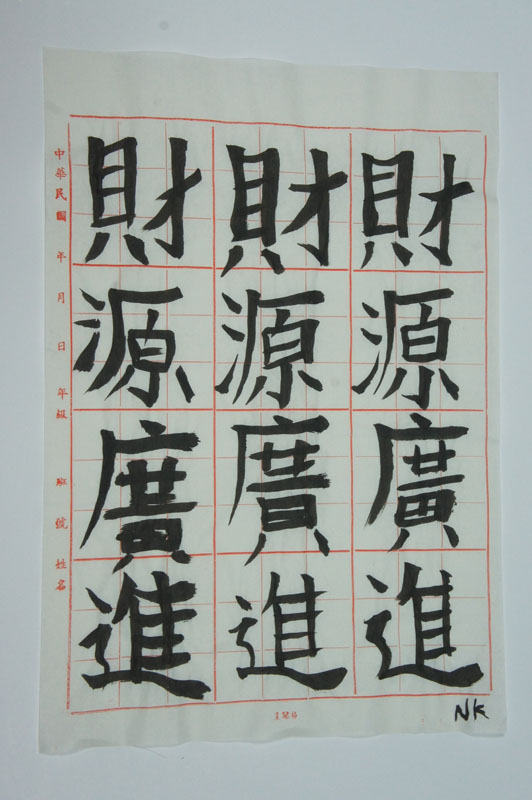 財源廣進
財源廣進
財源廣進
中華民國 年 月 日 年級 班 號 姓名
NK